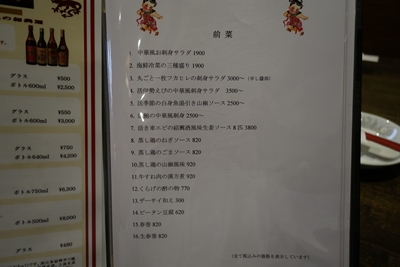 グラス ¥500
ボトル600ml ¥2,500
グラス ¥500
ボトル600ml
グラス ¥750
ボトル640ml ¥4,200
ボトル750ml
グラス ¥450
前菜
1 中華風お刺身サラダ 1900
2 海鮮冷菜の三種盛り 1900
3 丸ごと一枚フカヒレの刺身サラダ 3000〜
4 活伊勢えびの中華風サラダ 3500〜
5 活季節の白身魚湯引き山椒ソース 2500〜
の中華風刺身 2500〜
7 活き車エビの紹興酒風味生姜ソース 8匹 3800
8 蒸し鶏のねぎソース 820
9 蒸し鶏のごまソース 820
10 蒸し鶏の山椒風味 920
11 牛すね肉の漢方煮 920
12 くらげの酢の物 770
13 ザーサイ和え 300
14 ピータン豆腐 620
15 春巻 820
16 生春巻 820
(全て税込みの価格を表示しています)